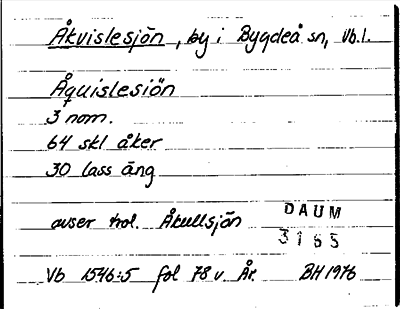 Åkvislesjön, by i Bygdeå sn, Vb.l.
Åquislesiön
3 nom.
64 skl åker
30 lass äng
avser trol. Åkullsjön
DAUM
3165
Vb 1546:5 fol 78 v. År. BH 1976